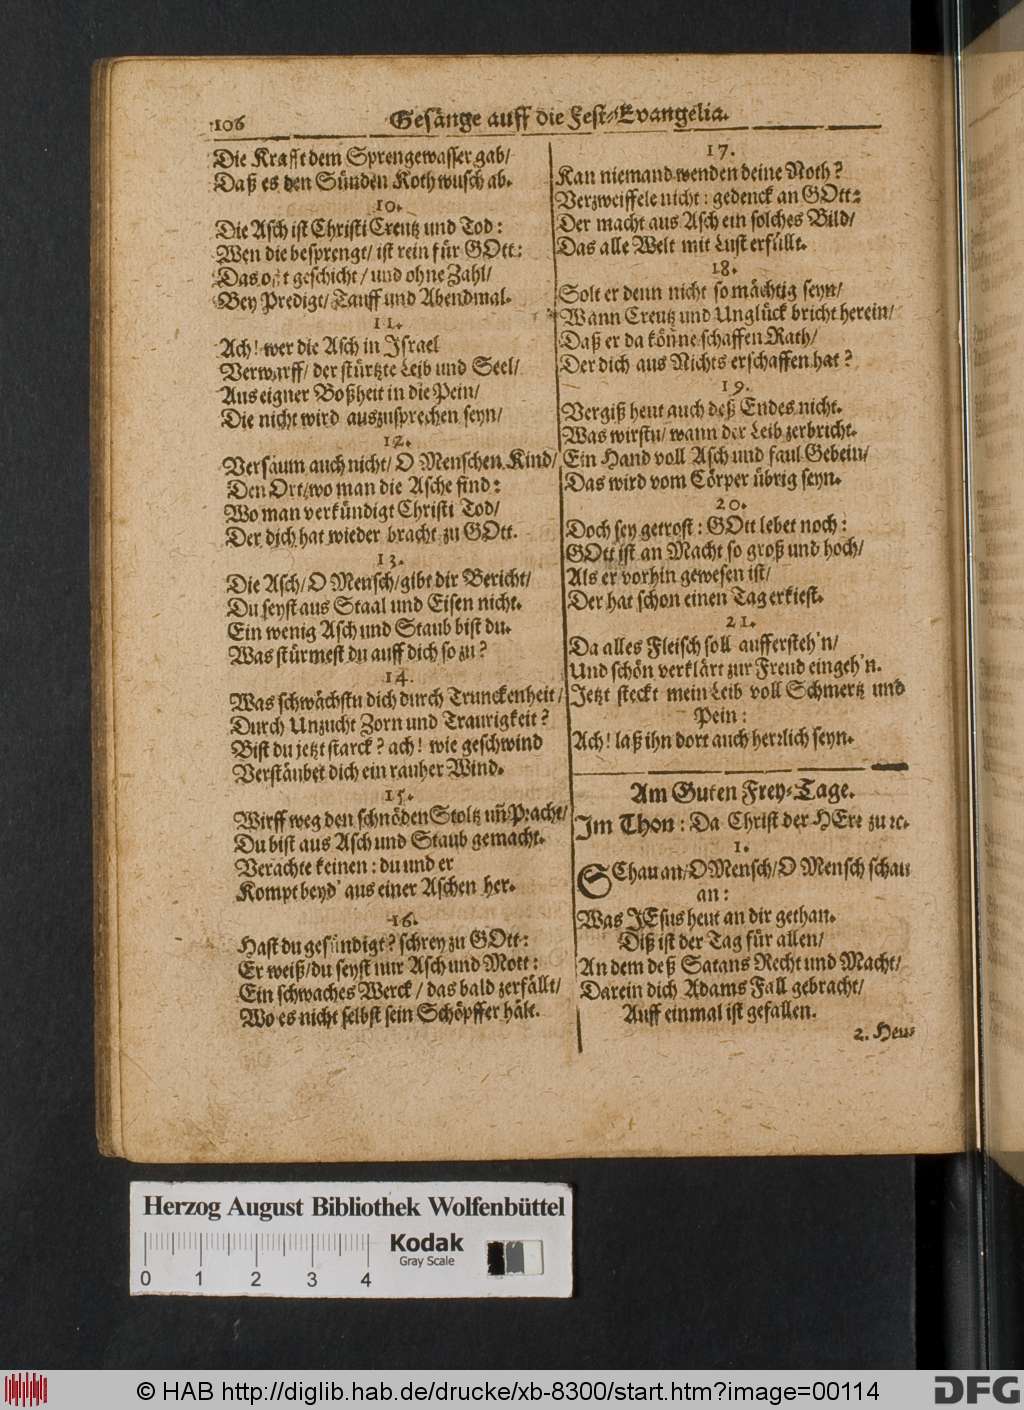 106
Gesänge auff die Fest-Evangelia.
Die Krafft dem Sprengewasser gab/
Daß es den Sünden Koth wusch ab.
10.
Die Asch ist Christi Creutz und Tod:
Wen die besprengt/ ist rein für GOtt:
Das oft geschicht/ und ohne Zahl/
Bey Predigt/ Tauff und Abendmal.
11.
Ach! wer die Asch in Israel
Verwarff/ der stürtzte Leib und Seel/
Aus eigner Boßheit in die Pein/
Die nicht wird auszusprechen seyn/
12.
Versäum auch nicht/ O Menschen Kind/
Den Ort/ wo man die Asche find:
Wo man verkündigt Christi Tod/
Der dich hat wieder bracht zu GOtt.
13.
Die Asch/ O Mensch/ gibt dir Bericht/
Du seyst aus Staal und Eisen nicht.
Ein wenig Asch und Staub bist du.
Was stürmest du auff dich so zu?
14.
Was schwächstu dich durch Trunckenheit/
Durch Unzucht Zorn und Traurigkeit?
Bist du jetzt starck? ach! wie geschwind
Verstäubet dich ein rauher Wind.
15.
Wirff weg den schnöden Stoltz uñ Pracht/
Du bist aus Asch und Staub gemacht.
Verachte keinen: du und er
Kompt beyd' aus einer Aschen her.
16.
Hast du gesündigt? schrey zu GOtt:
Er weiß/ du seyst nur Asch und Mott:
Ein schwaches Werck/ das bald zerfällt/
Wo es nicht selbst sein Schöpffer hält.
17.
Kan niemand wenden deine Noth?
Verzweiffele nicht: gedenck an GOtt:
Der macht aus Asch ein solches Bild/
Das alle Welt mit Lust erfüllt.
18.
Solt er denn nicht so mächtig seyn/
Wann Creutz und Unglück bricht herein/
Daß er da könne schaffen Rath/
Der dich aus Nichts erschaffen hat?
19.
Vergiß heut auch deß Endes nicht.
Was wirstu/ wann der Leib zerbricht.
Ein Hand voll Asch und faul Gebein/
Das wird vom Cörper übrig seyn.
20.
Doch sey getrost: GOtt lebet noch:
GOtt ist an Macht so groß und hoch/
Als er vorhin gewesen ist/
Der hat schon einen Tag erkiest.
21.
Da alles Fleisch soll aufferstehn/
Und schön verklärt zur Freud eingeh'n.
Jetzt steckt mein Leib voll Schmertz und
Pein:
Ach! laß ihn dort auch herrlich seyn.
Am Guten Frey-Tage.
Im Thon: Da Christ der HErr zu ꝛc.
1.
SChau an/ O Mensch/ O Mensch schau
an:
Was JEsus heut an dir gethan.
Diß ist der Tag für allen/
An dem deß Satans Recht und Macht/
Darein dich Adams Fall gebracht/
Auff einmal ist gefallen.
2. Heu-
Herzog August Bibliothek Wolfenbüttel
Kodak
Gray Scale
0 1 2 3 4
© HAB http://diglib.hab.de/drucke/xb-8300/start.htm?image=00114
DFG